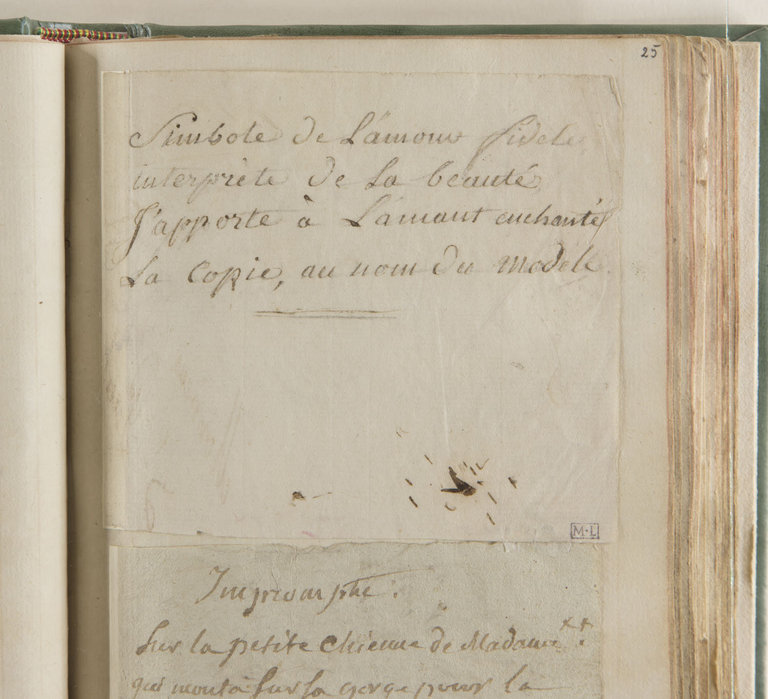 25
Simbole de L'amour fidele
interprète de La beauté,
J'apporte à L'amant enchanté
La Copie, au nom du modele.
M.L
Impromptu.
Sur la petite chienne de Madame **.
qui monta sur sa gorge pour la